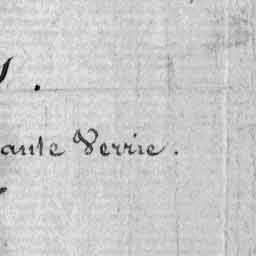 aute Verrie.